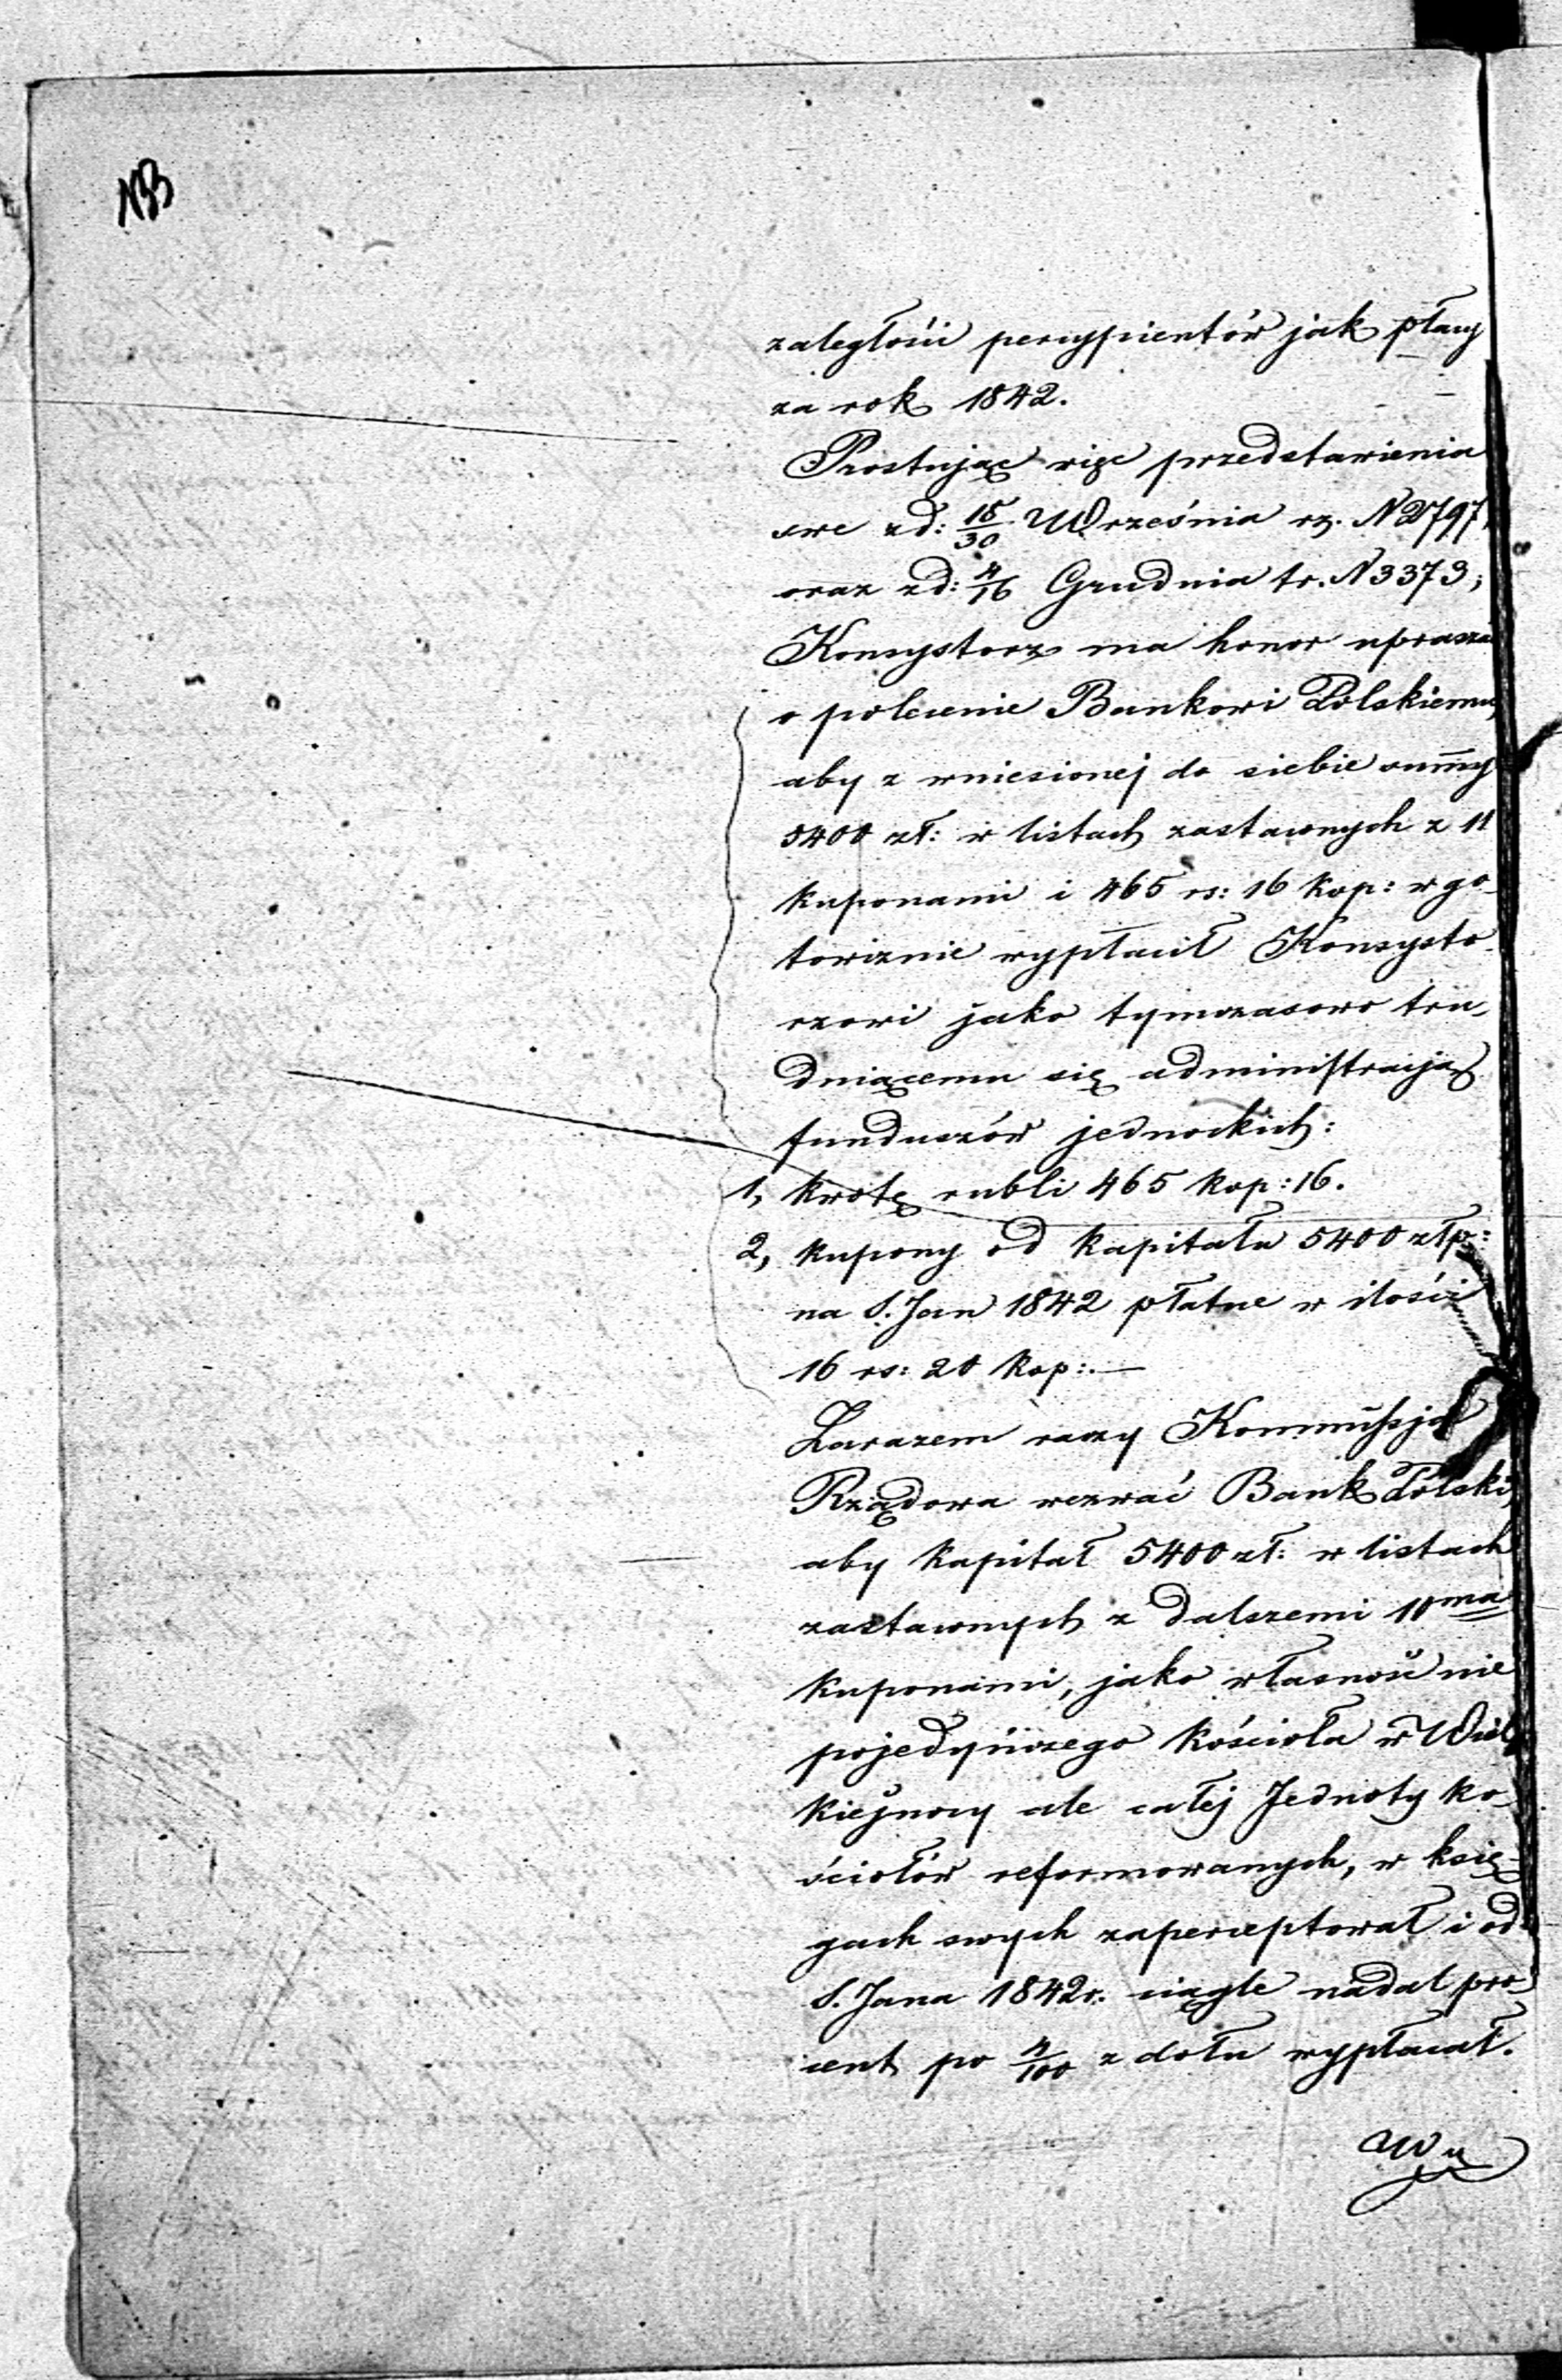 133
zaległości percypientów jak płacy
za rok 1842.
Prostując więc przedstawienia
swe z d: 18/30 Września rz. N 2797,
oraz z d: 4/16 Grudnia tr. N 3373;
Konsystorz ma honor upraszać
o polecenie Bankowi Polskiemu,
aby z wniesionej do siebie summy
5400 zł: w listach zastawnych z 11
kuponami i 465 rs: 16 kop: w go-
towiznie wypłacił Konsysto-
rzowi jako tymczasowo tru-
dniącemu się administracją
funduszów jednockich:
1, kwotę rubli 465 kop: 16.
2, kupony od kapitału 5400 złp:
na S. Jan 1842 płatne w ilości
16 rs: 20 kop:. —
Zarazem raczy Kommissja
Rządowa wezwać Bank Polski,
aby kapitał 5400 zł: w listach
zastawnych z dalszemi 10ma
kuponami, jako własność nie
pojedyńczego kościoła w Wiel-
kiejnocy ale całej Jednoty ko-
ściołów reformowanych, w księ-
gach swych zaperceptował i od
S. Jana 1842 r. ciągle nadal pro-
cent po 4/100 z dołu wypłacał.